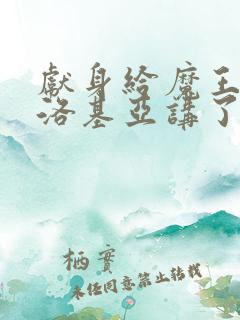 獻身給魔王
洛基亞講了
栖實
未經同意禁止轉載